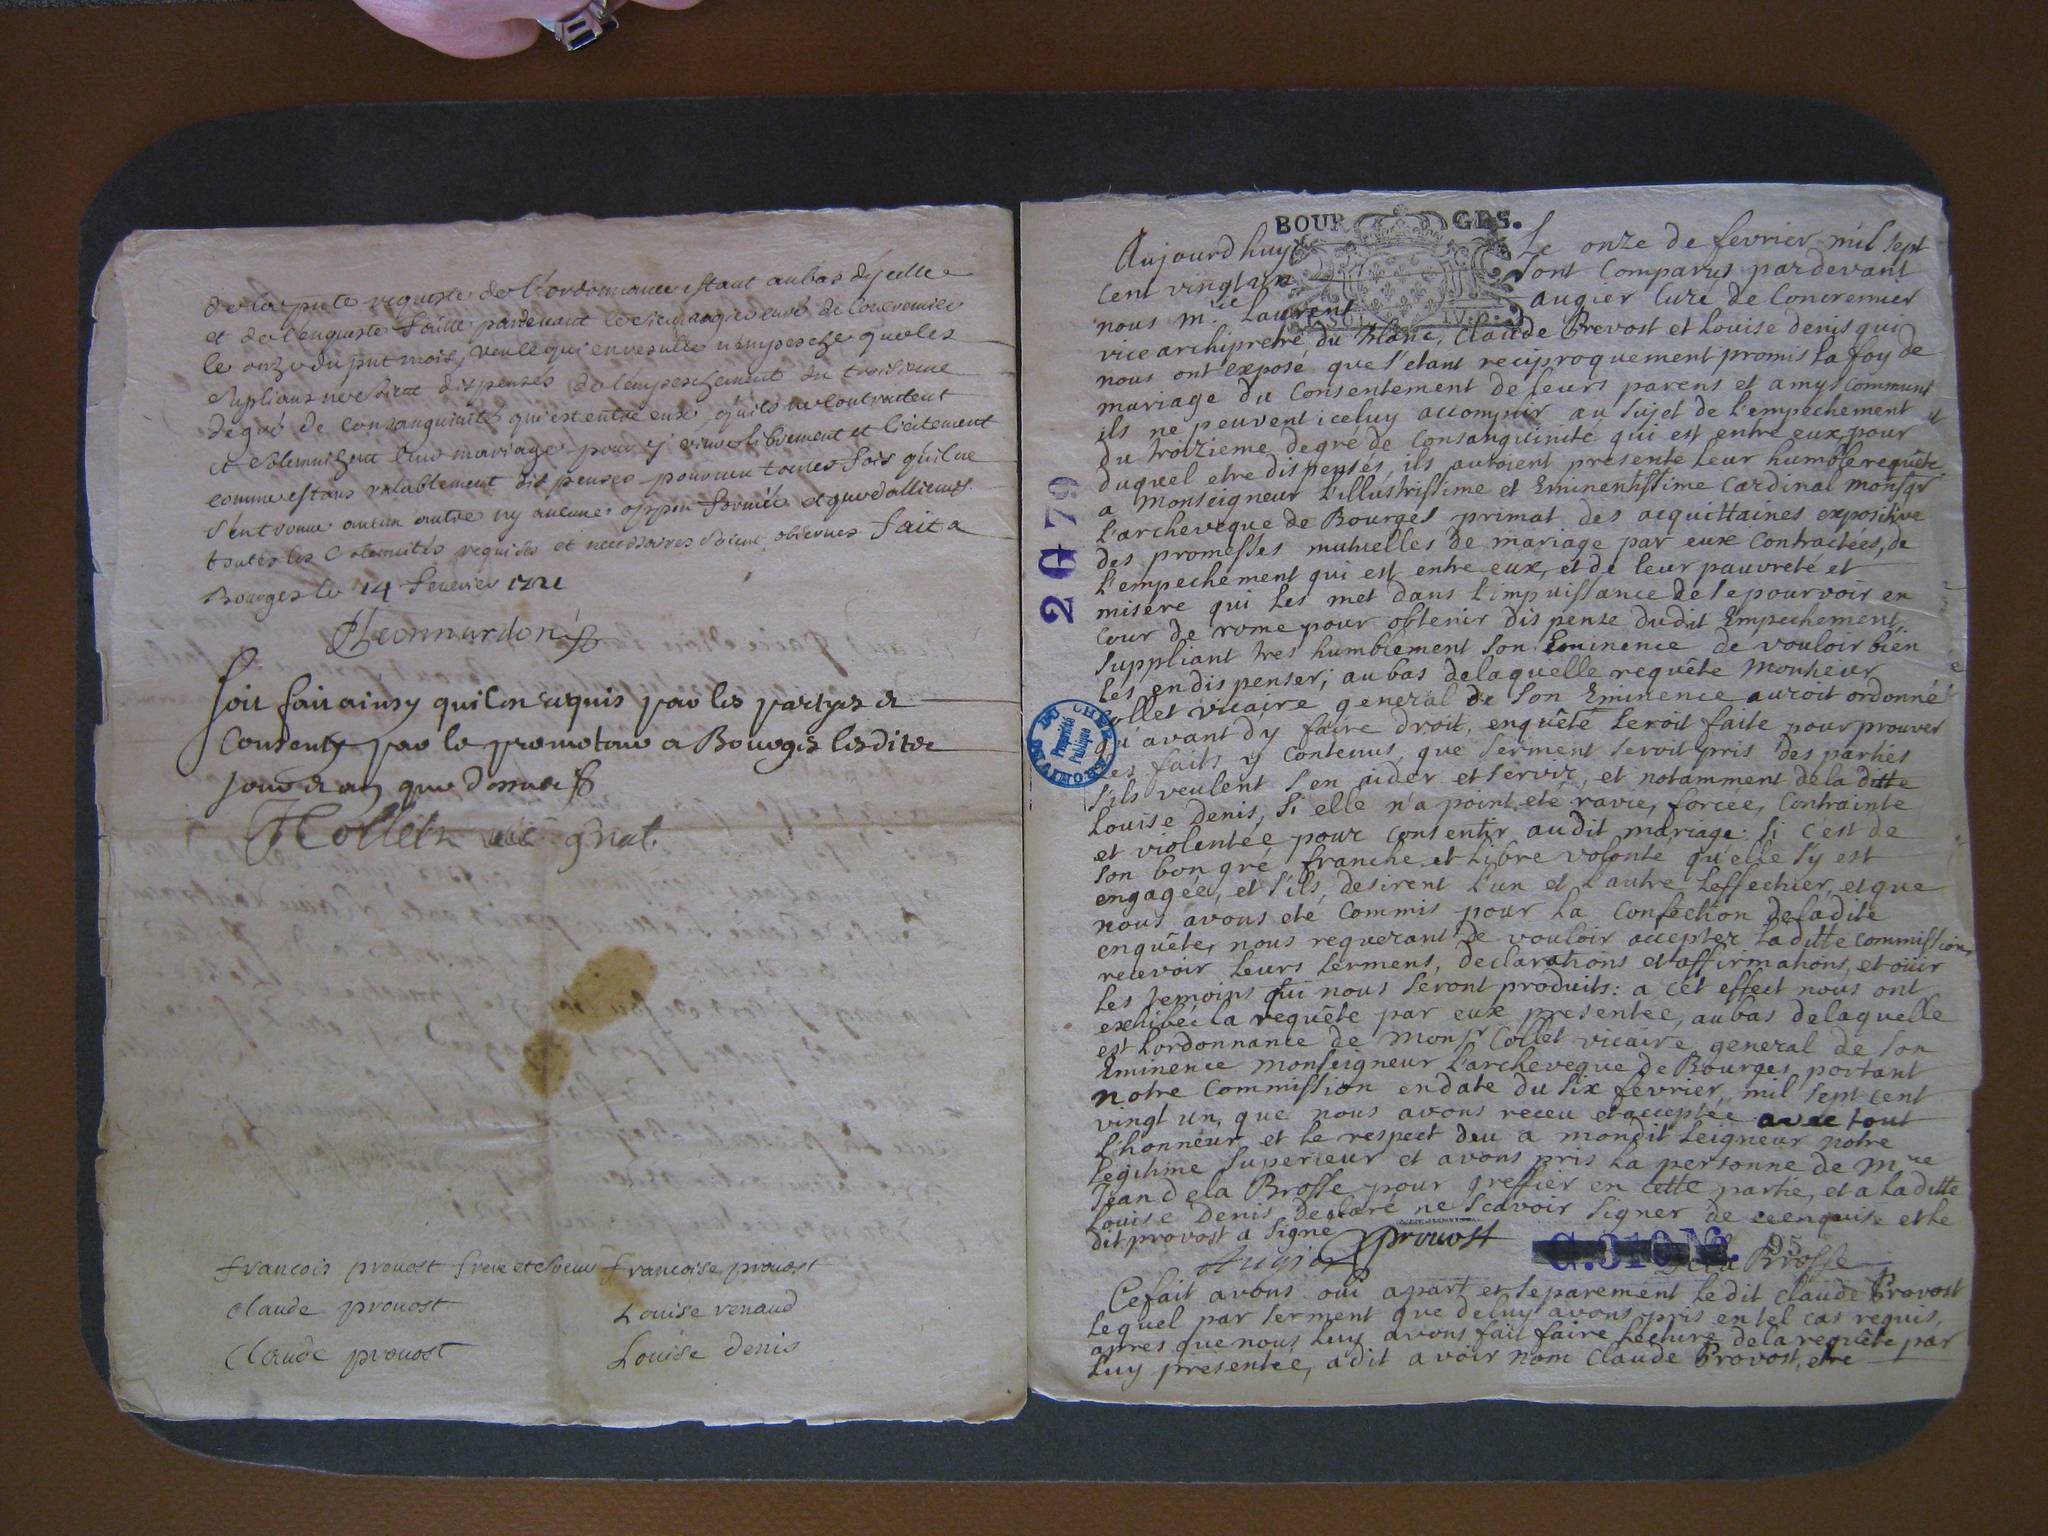 de la pnte requeste de l'ordonnance estant au bas d'jcelle
et de l'enqueste faitte pardevant le sieur augier curé de Concremier
le onze du pnt mois, veu le qui en resulte n'empesche que les
suplians ne soient dispensés de l'empeschement du troisieme
degré de consanguinité qui est entre eux, qu'ils ne contractent
et solemnisent leur mariage pour y vivre librement et licitement
comme estans valablement dispensés pourveu toutes fois qu'il ne
s'en trouve aucun autre ny aucune oppon formée et que d'allieurs
toutes les solemnités requises et necessaires soient observees fait a
Bourges le 14 feuvrier 1721
Leonnardon
soit fait ainsy quil est requis par les partyes et
consenty par le promoteur a Bourges lesdites
jour et an que dessus
Collet vic gnal.
francois prouost frere et soeur francoise prouost
claude prouost Louise renaud
Claude prouost Louise denis
BOURGES.
Aujourd huy Le onze de fevrier mil sept
cent vingt un sont Comparus pardevant
nous m.re Laurent augier Curé de Concremier
vice archipretre du Blanc, Claude Prevost et Louise denis qui
nous ont exposé que s'etant reciproquement promis la foy de
mariage du Consentement de leurs parens et amys communs
ils ne peuvent iceluy accomplir au sujet de l'empechement
du troizieme degré de Consanguinité qui est entre eux, pour
duquel etre dispensés, ils auroient presenté leur humble requête
a Monseigneur L'illustrissime et Eminentissime Cardinal monsgr
L'archeveque de Bourges primat des acquittaines expositive
des promesses mutuelles de mariage par eux Contractées, de
L'empechement qui est entre eux, et de leur pauvreté et
misere qui les met dans l'impuissance de se pourvoir en
Cour de rome pour obtenir dispense dudit Empechement,
suppliant tres humblement son Eminence de vouloir bien
les en dispenser; au bas de laquelle requête Monsieur
Collet vicaire general de son Eminence auroit ordonné
qu'avant d'y faire droit, enquête seroit faite pour prouver
les faits y contenus, que serment seroit pris des parties
s'ils veulent s'en aider et servir, et notamment de la ditte
Louise denis, si elle n'a point eté ravie, forcée, Contrainte
et violentée pour consentir audit mariage: si c'est de
son bon gré franche et Libre volonté qu'elle s'y est
engagée, et s'ils desirent L'un et L'autre L'effectuer, et que
nous avons eté Commis pour la Confection de ladite
enquête, nous requerant de vouloir accepter la ditte commission,
recevoir leurs sermens, declarations et affirmations, et oüir
les temoins qui nous seront produits: a cet effect nous ont
exhibé la requête par eux presentée, au bas de laquelle
est L'ordonnance de Monsr Collet vicaire general de son
Eminence monseigneur L'archeveque de Bourges portant
notre Commission en date du six fevrier, mil sept cent
vingt un, que nous avons receu et acceptée avec tout
L'honneur et le respect deu a mondit seigneur notre
legitime superieur et avons pris la personne de Mre
Jean dela Brosse pour greffier en cette partie, et a laditte
Louise Denis declaré ne scavoir signer de ce enquise et le
dit provost a signé
Augier prouost Dela Brosse
Ce fait avons oüi apart et separement le dit Claude Provost
Lequel par serment que de luy avons pris en tel cas requis,
apres que nous Luy avons fait faire lecture de la requête par
Luy presentée, a dit avoir nom Claude Provost, etre
2 G 79
DU CHER
Propriété
Publique
ARCHIVES
G. 310 95